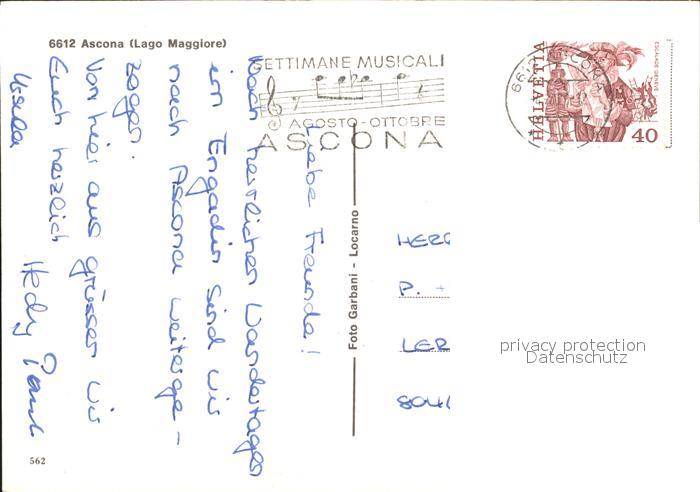 6612 Ascona (Lago Maggiore)
SETTIMANE MUSICALI
AGOSTO - OTTOBRE
ASCONA
6612 ASCONA
HELVETIA
ESCALADE GENÈVE
40
Liebe Freunde!
Nach herrlichen Wandertagen
im Engadin sind wir
nach Ascona weiterge-
zogen.
Von hier aus grüssen wir
Euch herzlich
Hedy Paul
Ursula
Foto Garbani - Locarno
HERR
P. +
LER
804
privacy protection
Datenschutz
562